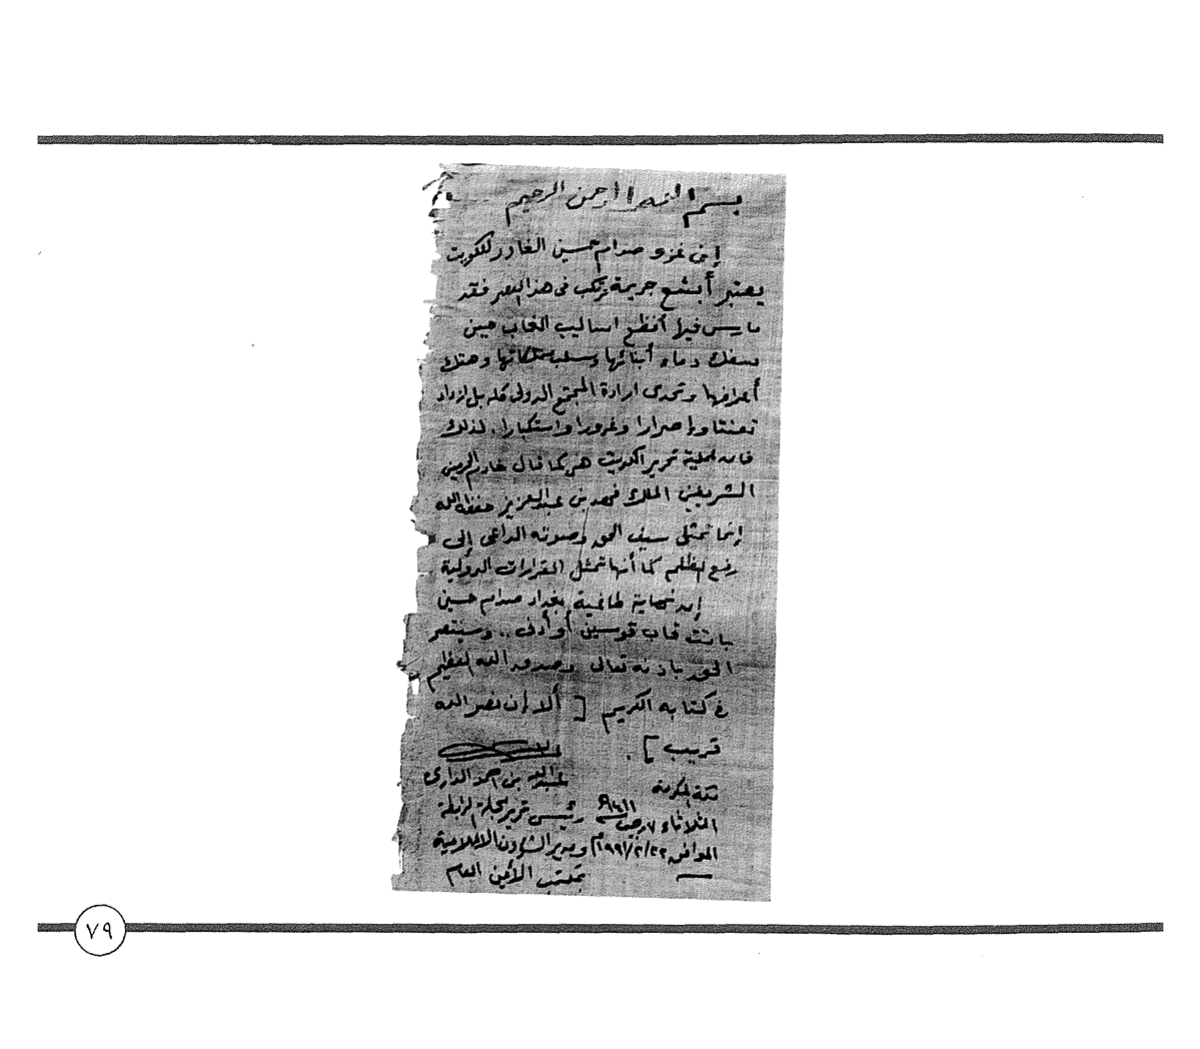 بسم الله الرحمن الرحيم
إن غزو صدام حسين الغادر للكويت
يعتبر أبشع جريمة ترتكب في هذا العصر فقد
مارس فيها أفظع أساليب الغاب حين
سفك دماء أبنائها وسلب ممتلكاتها وهتك
أعراضها وتحدى ارادة المجتمع الدولي كله بل ازداد
تعنتا وإصرارا وغرورا واستكبارا. لذلك
فان عملية تحرير الكويت هي كما قال خادم الحرمين
الشريفين الملك فهد بن عبدالعزيز حفظه الله
إنما تمثل سيف الحق وصوته الداعي إلى
رفع الظلم كما أنها تمثل القرارات الدولية
إن نهاية طاغية بغداد صدام حسين
باتت قاب قوسين أو أدنى .. وسينتصر
الحق باذنه تعالى وصدق الله العظيم
في كتابه الكريم [ ألا إن نصر الله
قريب ] .
عبدالله بن احمد الداري
مكة المكرمة
رئيس تحرير مجلة الرابطة
الثلاثاء ٧ رجب ١٤١١هـ
ومدير الشؤون الاعلامية
الموافق ٢٢/٢/١٩٩١م
بمكتب الأمين العام
٧٩